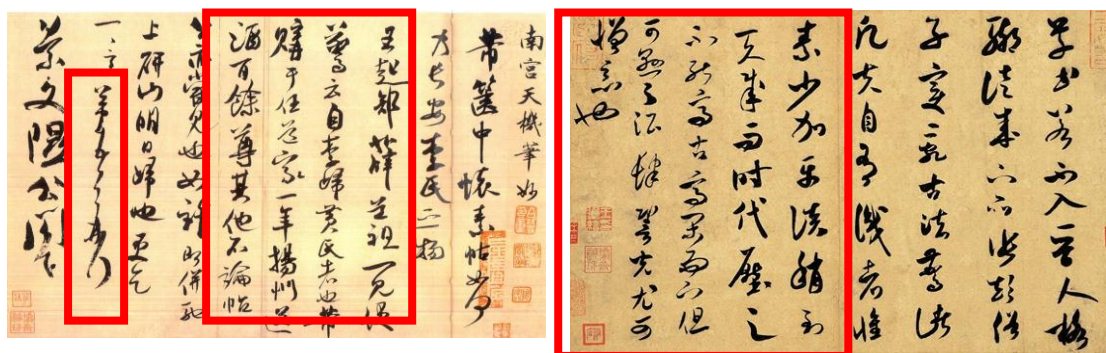 南宮天機筆妙
芾篋中懷素帖如何
乃長安李氏之物
王起部薛道祖一見便
驚云自李歸黃氏者也芾
購于任道家一年揚州送
酒百餘尊其他不論帖
公亦嘗見也如許即併馳
上研山明日歸也更乞
一言芾頓首再拜
景文隰公閣下
草書若不入晉人格
聊徒成下品張顛俗
子變亂古法驚諸
凡夫自有識者懷
素少加平淡稍到
天成而時代壓之
不能高古高閑而下但
可懸之酒肆䛒光尤可
憎惡也